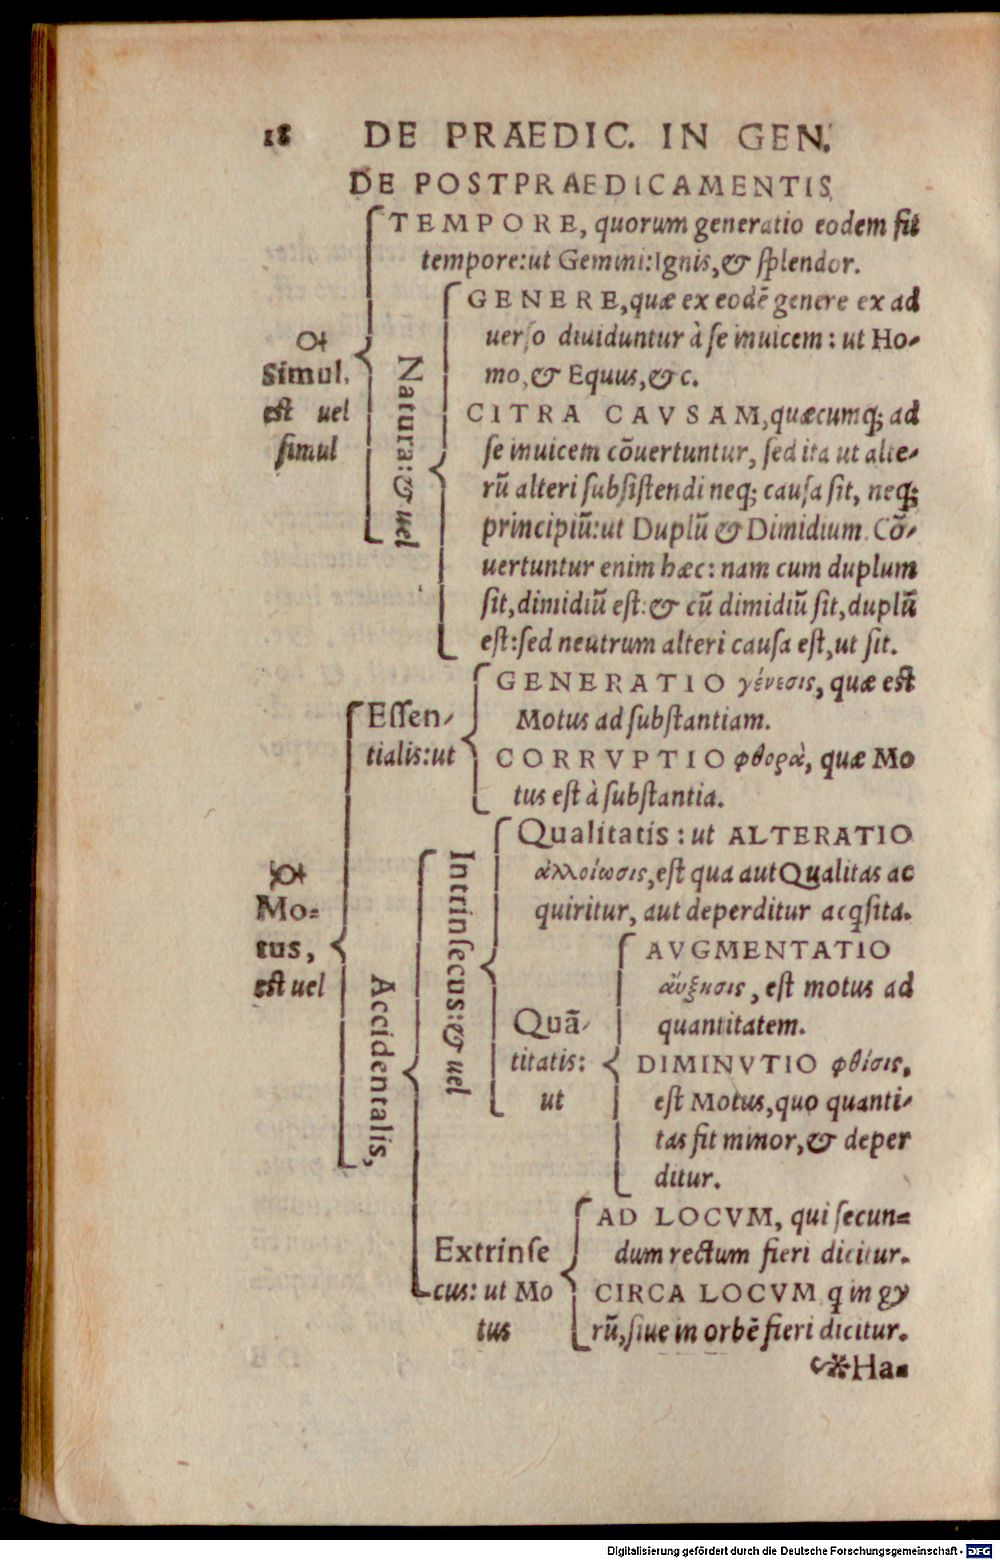 18 DE PRAEDIC. IN GEN.
DE POSTPRAEDICAMENTIS
TEMPORE, quorum generatio eodem fit
tempore:ut Gemini:Ignis,& splendor.
Simul.
est uel
simul
Natura:& uel
GENERE,quæ ex eodē genere ex ad
uerso diuiduntur à se inuicem: ut Ho-
mo,& Equus,&c.
CITRA CAVSAM,quæcumq; ad
se inuicem cōuertuntur, sed ita ut alte-
rū alteri subsistendi neq; causa sit, neq;
principiū:ut Duplū & Dimidium. Cō-
uertuntur enim hæc: nam cum duplum
sit,dimidiū est:& cū dimidiū sit,duplū
est:sed neutrum alteri causa est,ut sit.
Motus,
Mo=
tus,
est uel
Essen-
tialis:ut
GENERATIO γένεσις, quæ est
Motus ad substantiam.
CORRVPTIO φθορὰ, quæ Mo
tus est à substantia.
Accidentalis,
Intrinsecus:& uel
Qualitatis: ut ALTERATIO
ἀλλοίωσις,est qua aut Qualitas ac
quiritur, aut deperditur acqsita.
Quā-
titatis:
ut
AVGMENTATIO
ἄυξησις, est motus ad
quantitatem.
DIMINVTIO φθίσις,
est Motus,quo quanti-
tas fit minor,& deper
ditur.
Extrinse
cus: ut Mo
tus
AD LOCVM, qui secun=
dum rectum fieri dicitur.
CIRCA LOCVM q in gy
rū,siue in orbē fieri dicitur.
Ha=
Digitalisierung gefördert durch die Deutsche Forschungsgemeinschaft - DFG